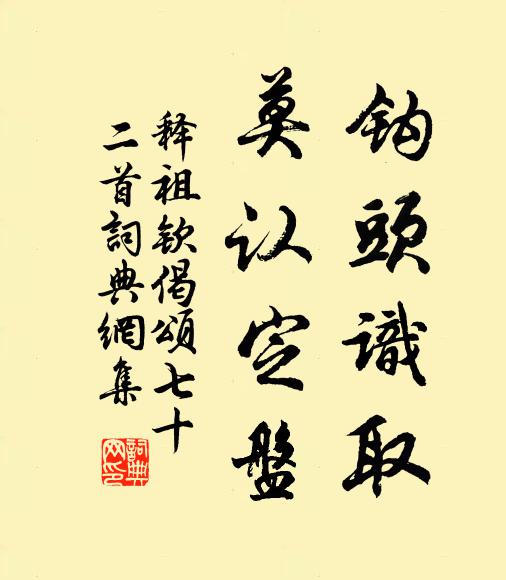 钩頭識取
莫认定盤
释祖钦偈頌七十
二首詞典網集
詞典网印